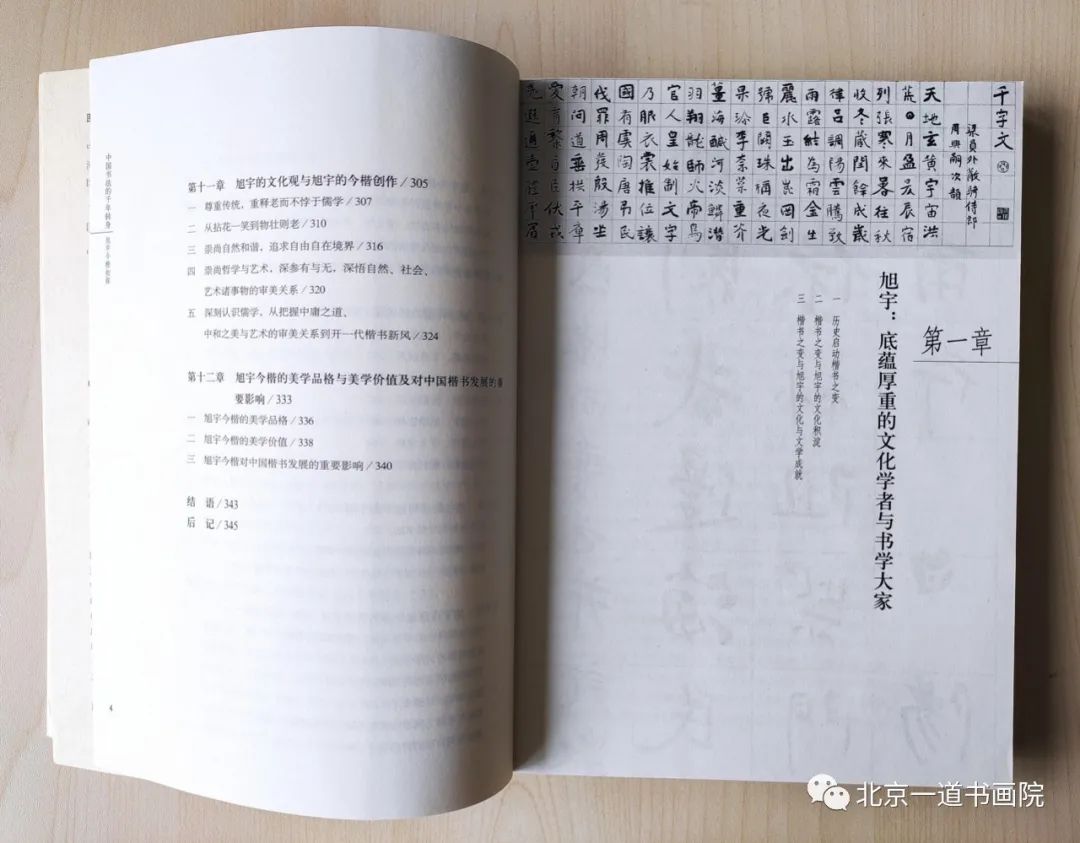 中国书法的千年转身
第十一章 旭宇的文化观与旭宇的今楷创作/305
一 尊重传统，重释老而不悖于儒学/307
二 从拈花一笑到物壮则老/310
三 崇尚自然和谐，追求自由自在境界/316
四 崇尚哲学与艺术，深参有与无，深悟自然、社会、
艺术诸事物的审美关系/320
五 深刻认识儒学，从把握中庸之道、
中和之美与艺术的审美关系到开一代楷书新风/324
第十二章 旭宇今楷的美学品格与美学价值及对中国楷书发展的重
要影响/333
一 旭宇今楷的美学品格/336
二 旭宇今楷的美学价值/338
三 旭宇今楷对中国楷书发展的重要影响/340
结 语/343
后 记/345
4
千字文
梁員外散騎侍郎
周興嗣次韻
天地玄黄宇宙洪
荒日月盈昃辰宿
列張寒來暑往秋
收冬藏閏餘成歲
律吕調陽雲騰致
雨露結為霜金生
麗水玉出崑岡劍
號巨闕珠稱夜光
果珍李柰菜重芥
薑海鹹河淡鱗潛
羽翔龍師火帝鳥
官人皇始制文字
乃服衣裳推位讓
國有虞陶唐弔民
伐罪周發殷湯坐
朝問道垂拱平章
愛育黎首臣伏戎
第一章
旭宇：底蕴厚重的文化学者与书学大家
一 历史启动楷书之变
二 楷书之变与旭宇的文化积淀
三 楷书之变与旭宇的文化与文学成就
北京一道书画院